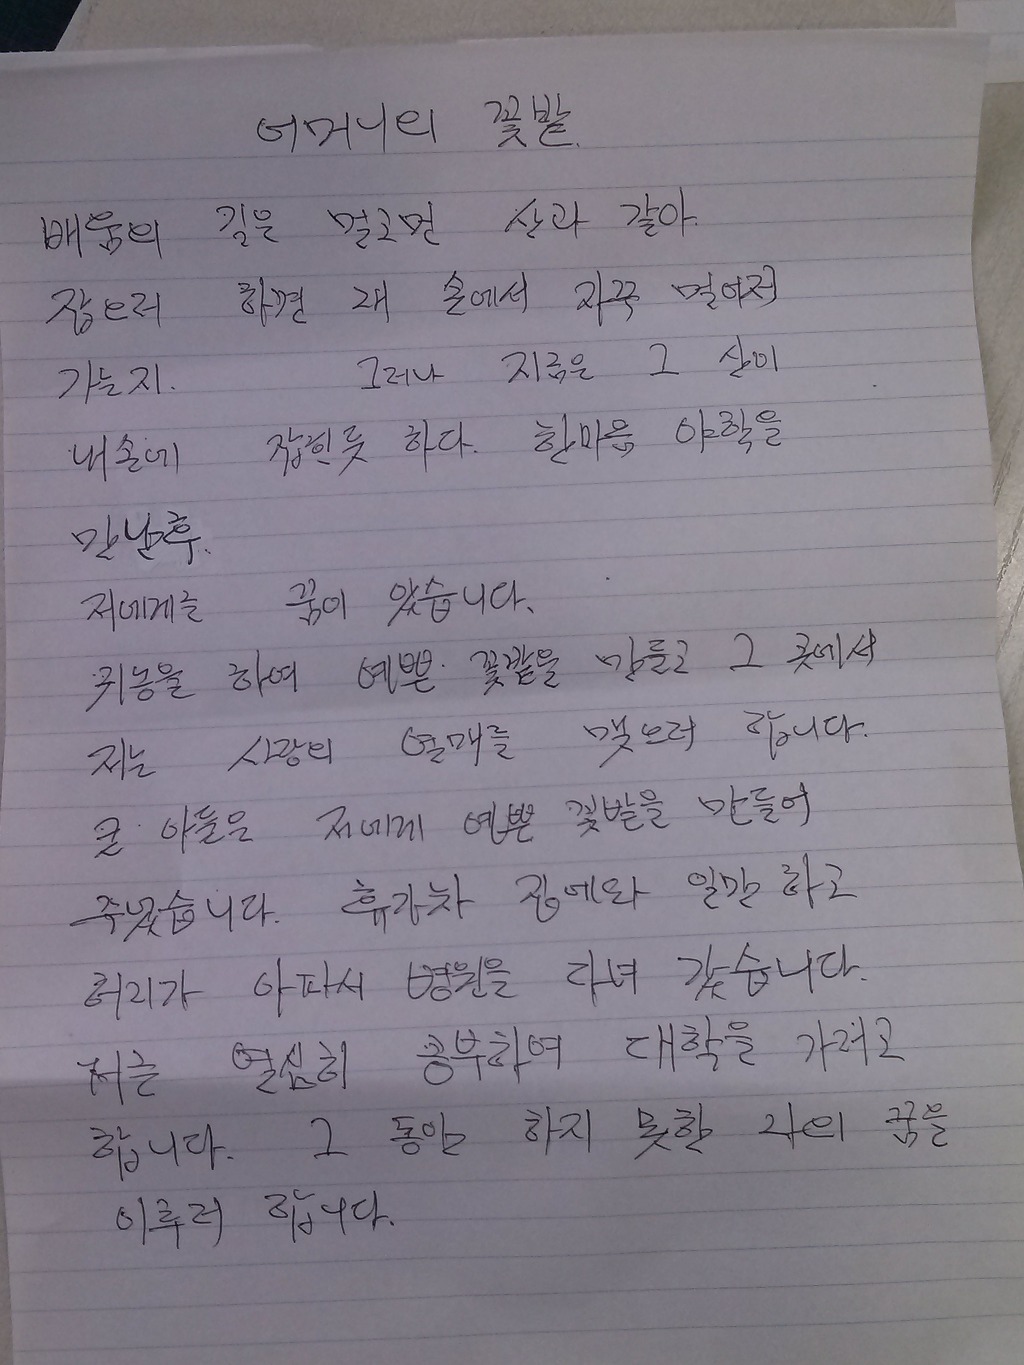 어머니의 꽃밭.
배움의 길은 멀고먼 산과 같아.
잡으려 하면 내 손에서 자꾸 멀어져
가는지. 그러나 지금은 그 산이
내손에 잡힌듯 하다. 한마음 야학을
만남후.
저에게는 꿈이 있습니다.
귀농을 하여 예쁜 꽃밭을 만들고 그 곳에서
저는 사랑의 열매를 맺으려 합니다.
큰 아들은 저에게 예쁜 꽃밭을 만들어
주었습니다. 휴가차 집에와 일만 하고
허리가 아파서 병원을 다녀 갔습니다.
저는 열심히 공부하여 대학을 가려고
합니다. 그 동안 하지 못한 나의 꿈을
이루려 합니다.